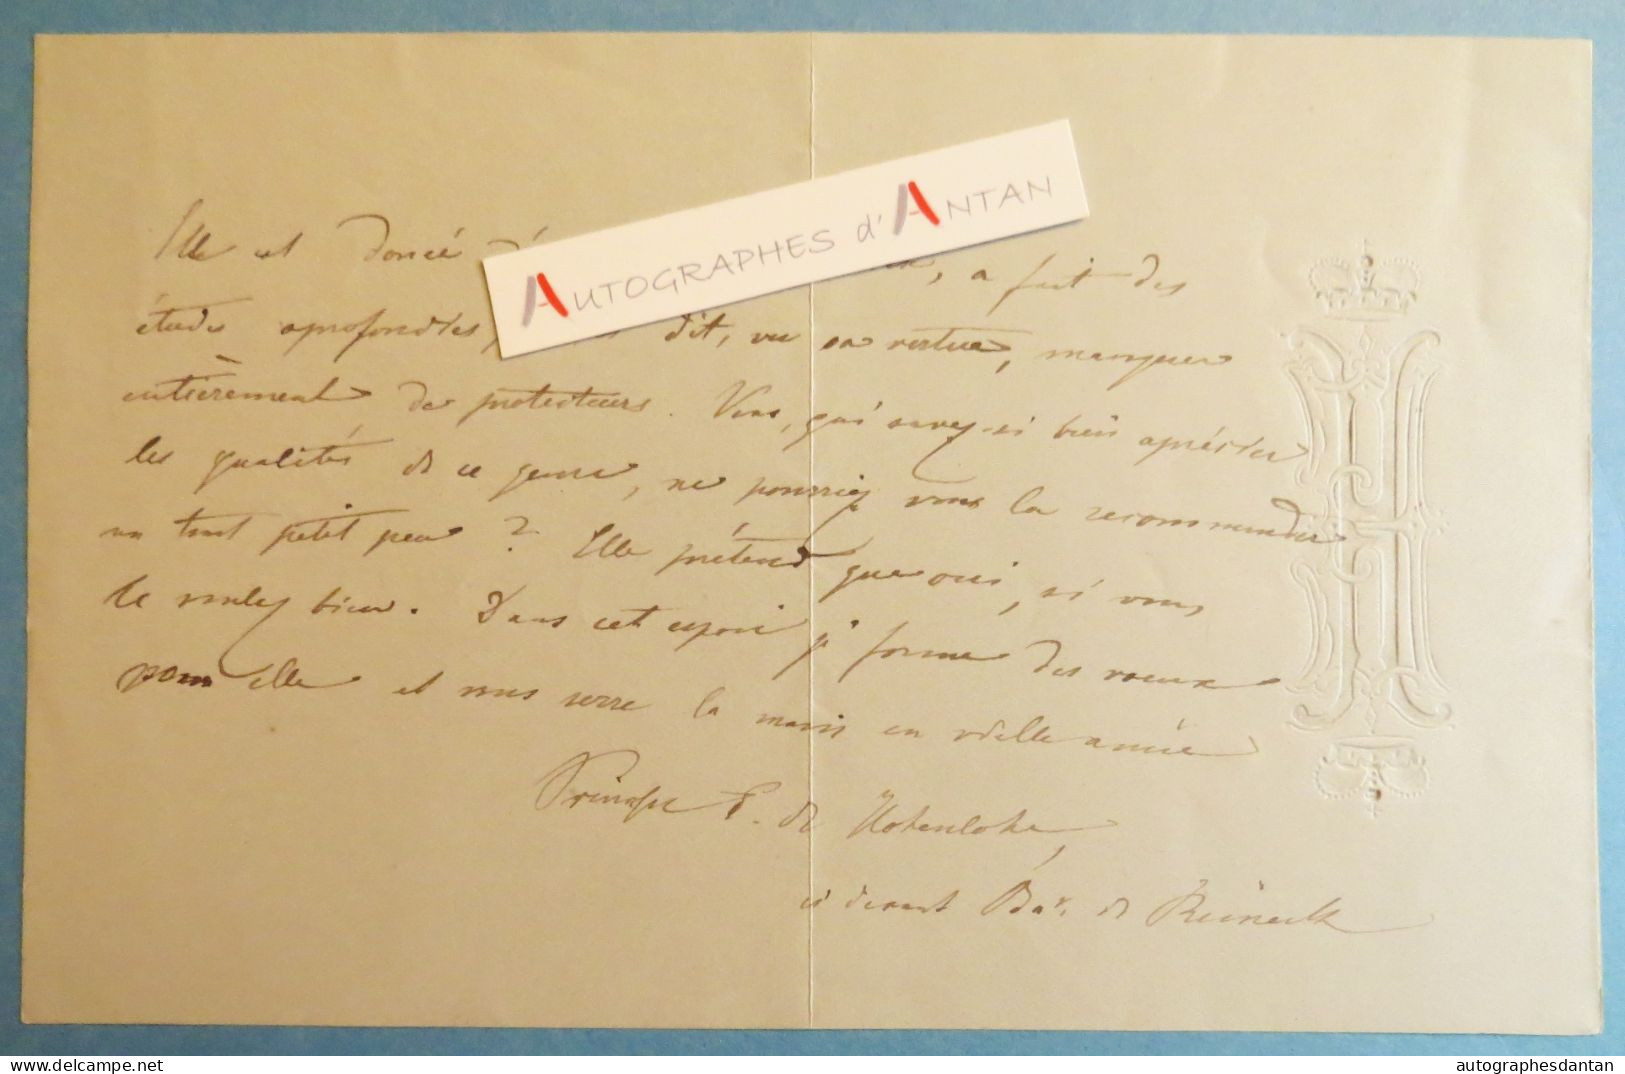 Elle est douée d'
AUTOGRAPHES d'ANTAN
, a fait des
études aprofondies, dit, vu sa vertue, manquer
entièrement de protecteurs. Vous, qui savez si bien aprécier
les qualités de ce genre, ne pourriez vous la recommander
un tout petit peu ? Elle prétend que oui, si vous
le voulez bien. Dans cet espoir j' forme des voeux
pour elle et vous serre la main en vielle amie
Princesse F. de Hohenlohe,
ci devant Bar. de Reineck
autographesdantan
autographesdantan